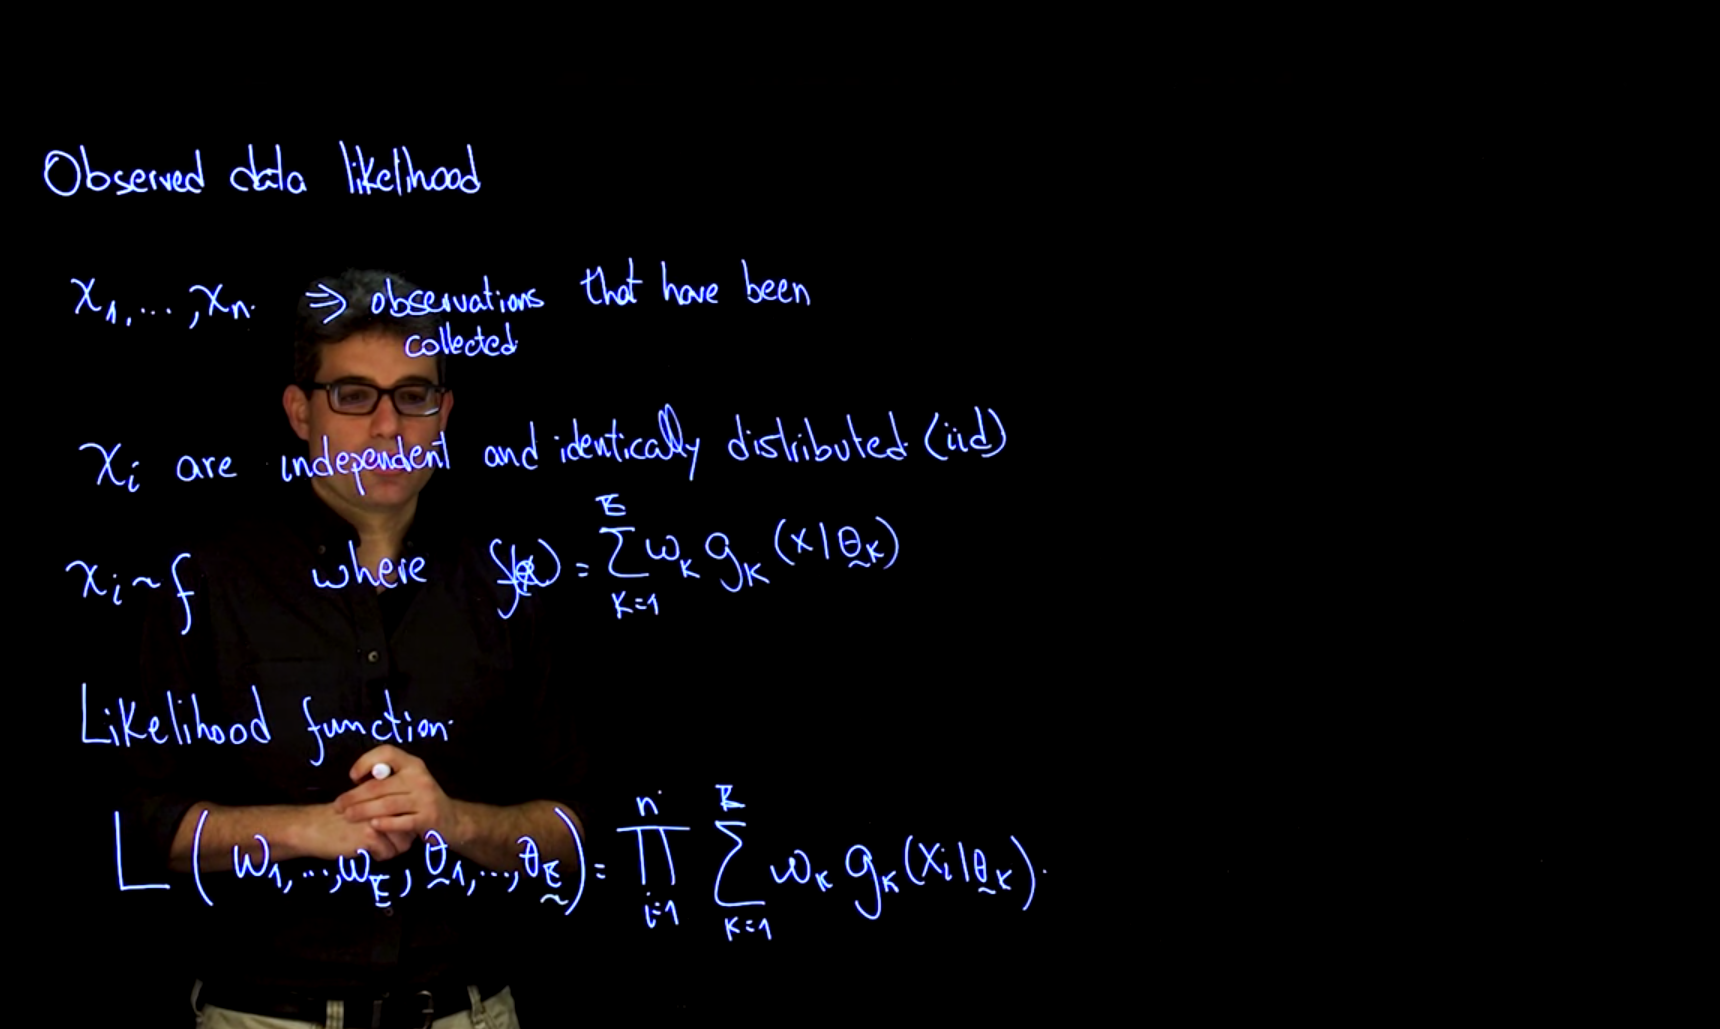 Observed data likelihood
x₁, ..., xₙ. ⇒ observations that have been
collected
xᵢ are independent and identically distributed (iid)
xᵢ ~ f where f(x) = ∑_{k=1}^{K} ωₖ gₖ (x | θ̰ₖ)
Likelihood function
L (ω₁, ..., ω_K, θ̰₁, ..., θ̰_K) = ∏_{i=1}^{n} ∑_{k=1}^{K} ωₖ gₖ (xᵢ | θ̰ₖ).